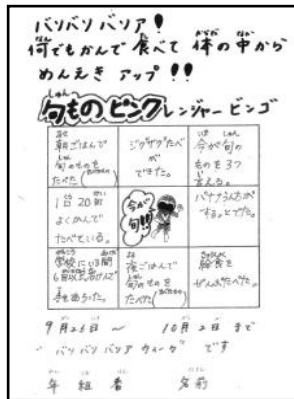 バリバリバリア!
何でもかんで食べて体の中から
めんえきアップ!!
旬ものピンクレンジャービンゴ
朝ごはんで
旬のものを
たべた
ジグザグたべ
が
できた。
今が旬の
ものを3つ
言える。
1日20回
よくかんで
たべている。
今が
旬!!
バナナうんちが
するっとでた。
学校にいる間
6回以上石けんで
手をあらった。
夜ごはんで
旬のものを
たべた
給食を
ぜんぶたべた。
9月26日 ~ 10月2日まで
"バリバリバリアウィーク" です
年 組 番 名前